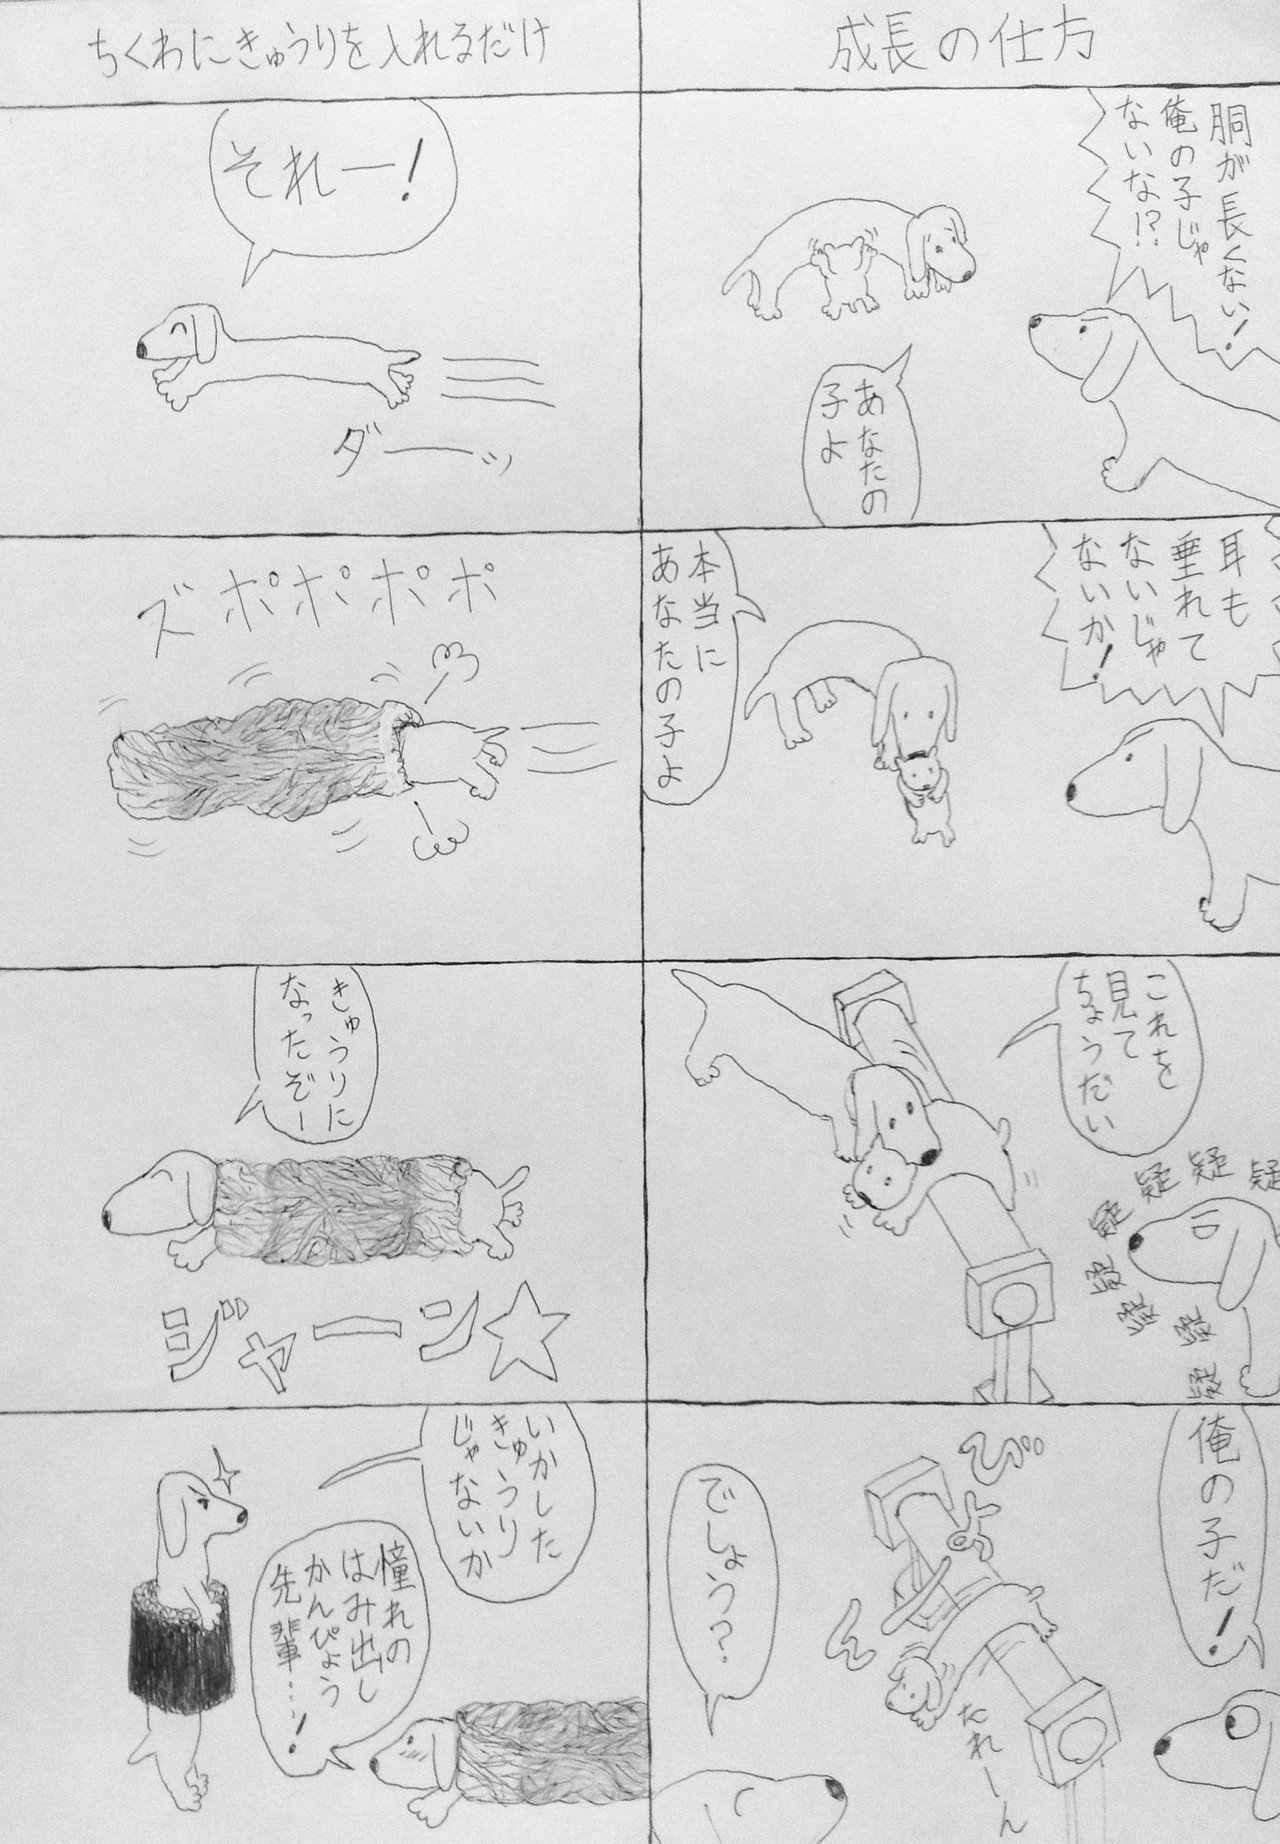 成長の仕方
胴が長くない!
俺の子じゃ
ないな!?
あなたの
子よ
耳も
垂れて
ないじゃ
ないか!
本当に
あなたの子よ
これを
見て
ちょうだい
疑疑疑疑疑疑疑疑疑
俺の子だ!
びよーん
たれーん
でしょう?
ちくわにきゅうりを入れるだけ
それー!
ダーッ
ズポポポポ
きゅうりに
なったぞー
ジャーン☆
いかした
きゅうり
じゃないか
憧れの
はみ出し
かんぴょう
先輩…!